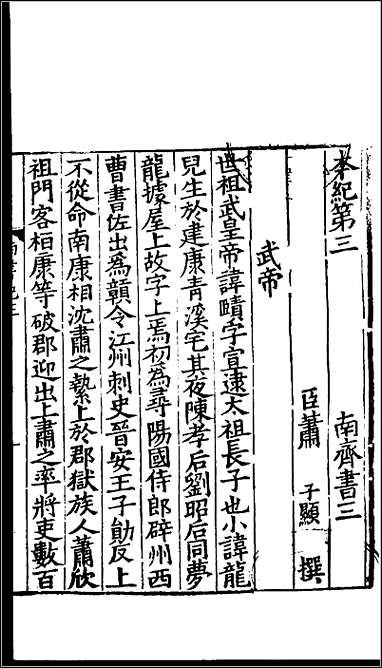 本紀第三　南齊書三
臣蕭　子顯　撰
武帝
世祖武皇帝諱賾字宣遠太祖長子也小諱龍
兒生於建康青溪宅其夜陳孝后劉昭后同夢
龍據屋上故字上焉初為尋陽國侍郎辟州西
曹書佐出為贛令江州刺史晉安王子勛反上
不從命南康相沈肅之縶上於郡獄族人蕭欣
祖門客桓康等破郡迎出上肅之率將吏數百